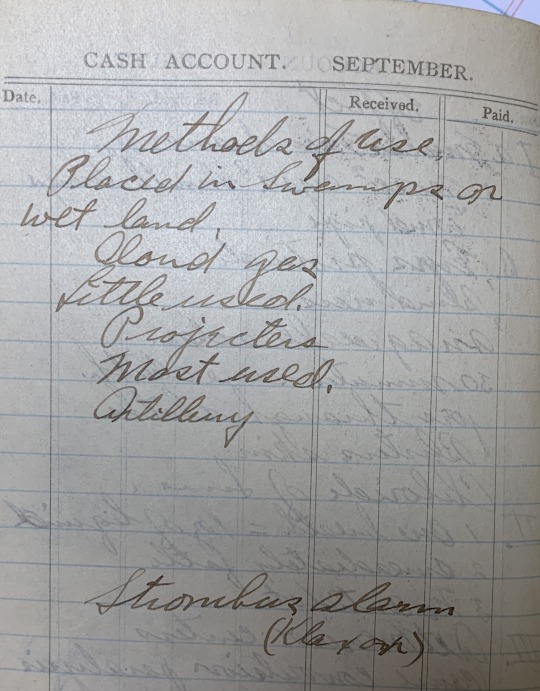 CASH ACCOUNT. SEPTEMBER.
Date. Received. Paid.
Methods of use.
Placed in Swamps or
wet land.
Cloud gas
Little used.
Projecters
Most used.
Artillery
Strombus alarm
(Klaxon)